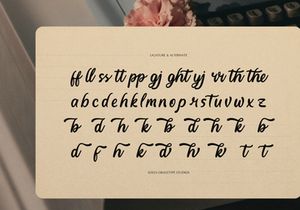 LIGATURE & ALTERNATE
ff ll ss tt pp gj ght yj rr th the
a b c d e f g h k l m n o p r s t u v w x z
b d h k b d h k b
d f h k d h k t t